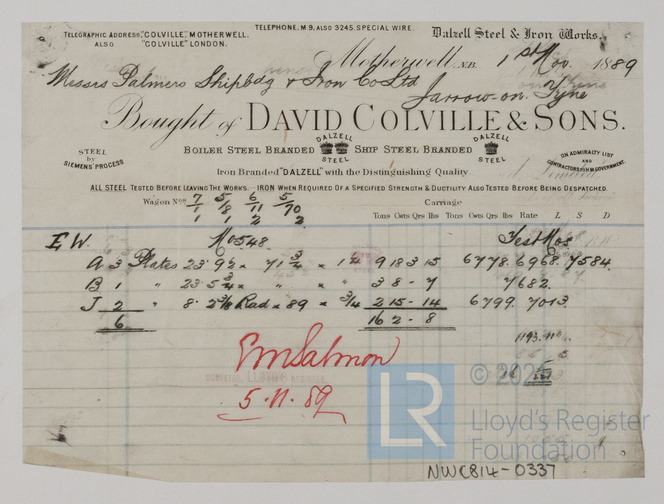 TELEGRAPHIC ADDRESS, "COLVILLE", MOTHERWELL.
ALSO "COLVILLE" LONDON.
TELEPHONE. M 9, ALSO 3245. SPECIAL WIRE.
Dalzell Steel & Iron Works.
Motherwell, N.B. 1st Nov. 1889
Messrs Palmers Shipbdg & Iron Co Ltd
Jarrow-on-Tyne
Bought of DAVID COLVILLE & SONS.
STEEL by SIEMENS' PROCESS
BOILER STEEL BRANDED DALZELL STEEL SHIP STEEL BRANDED DALZELL STEEL
ON ADMIRALTY LIST AND CONTRACTORS TO H.M. GOVERNMENT.
Iron Branded "DALZELL" with the Distinguishing Quality
ALL STEEL TESTED BEFORE LEAVING THE WORKS. IRON WHEN REQUIRED OF A SPECIFIED STRENGTH & DUCTILITY ALSO TESTED BEFORE BEING DESPATCHED.
Wagon Nos 7/1 5/8 6/11 5/70
1 1 2 2
Carriage
Tons Cwts Qrs lbs Tons Cwts Qrs lbs Rate L S D
E.W. No 548. Test Nos
A 3 Plates 23·9½ × 71¾ × 1¼ 9 18 3 15 6778. 6968. 7584.
B 1 " 23·5¾ × " × " 3 8 - 7 7682.
J 2 " 8·2⅜ Rad × 89 × ¾ 2 15 - 14 6799. 7013.
6 16 2 - 8
EM Salmon
5.11.89
© 202
LR
Lloyd's Register
Foundation
NWC814-0337